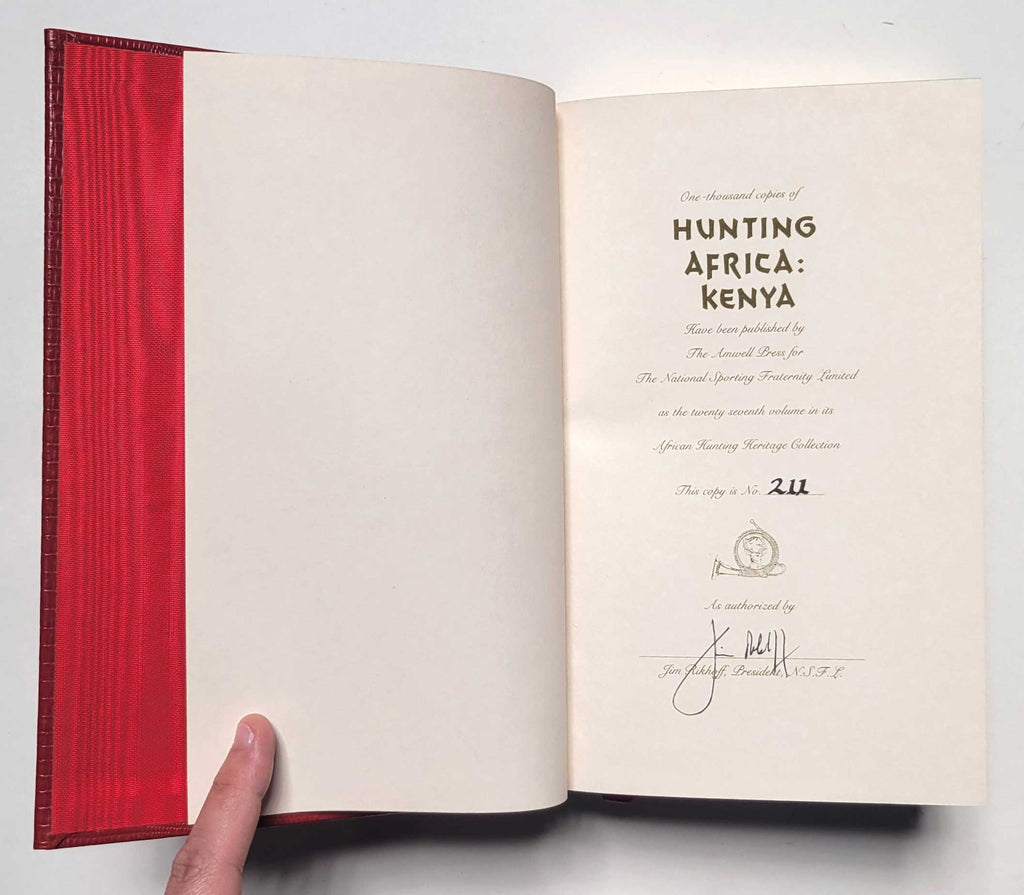 One-thousand copies of
HUNTING
AFRICA:
KENYA
Have been published by
The Amwell Press for
The National Sporting Fraternity Limited
as the twenty seventh volume in its
African Hunting Heritage Collection
This copy is No. 211
As authorized by
Jim Rikhoff
Jim Rikhoff, President, N.S.F.L.